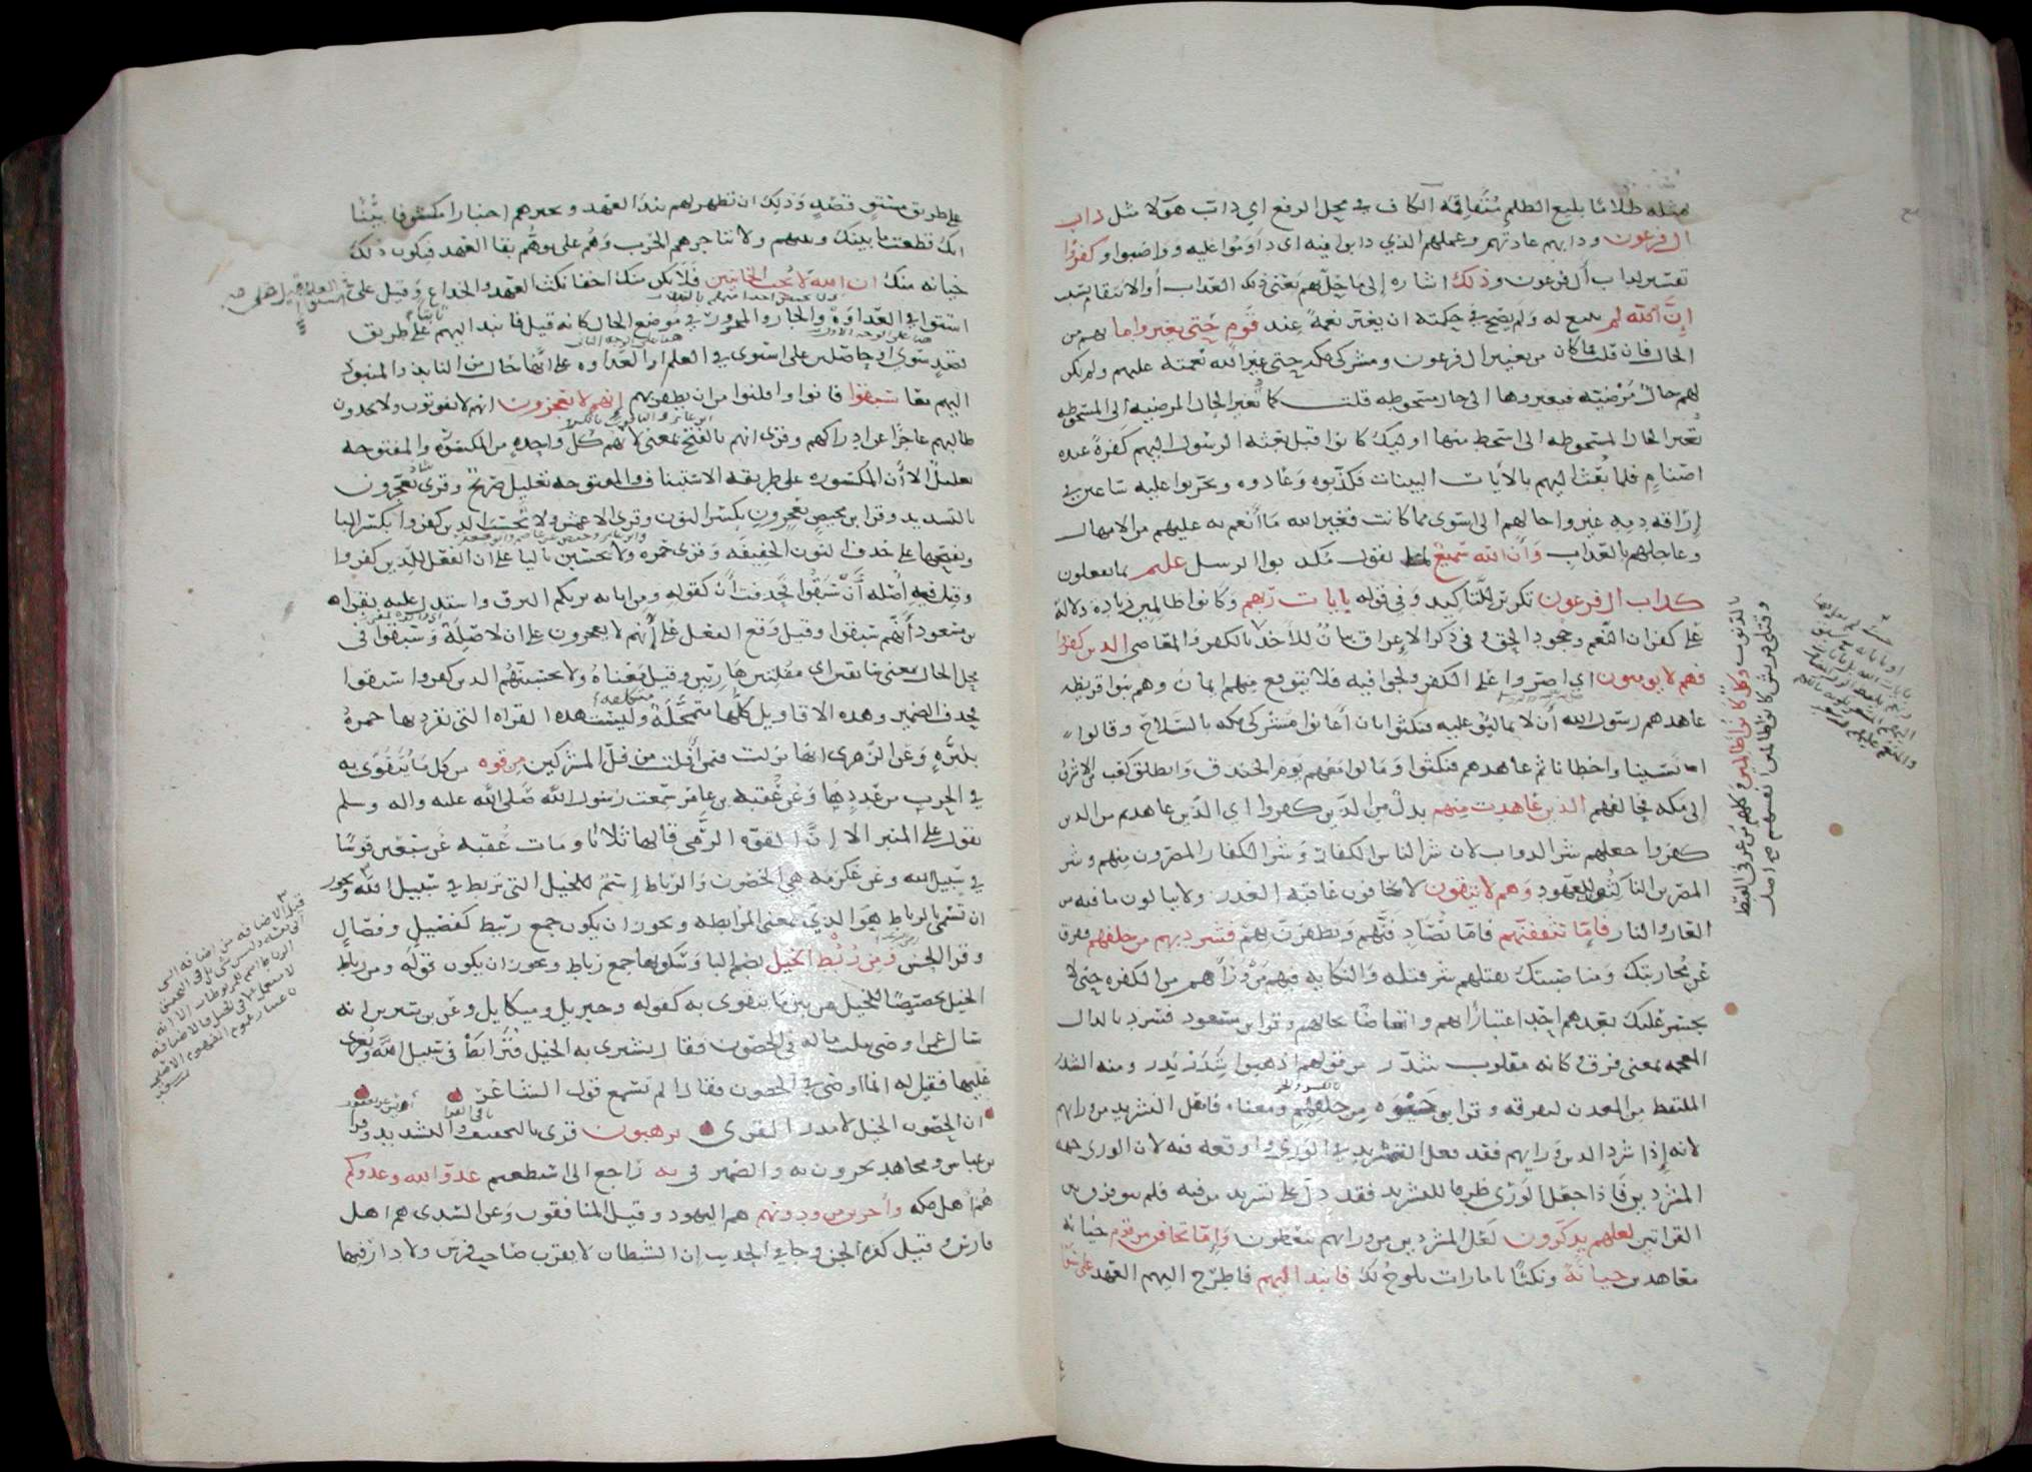 مثله ظلاما بليغ الظلم متفاقمه الكاف في محل الرفع اي داب هولا مثل داب
ال فرعون ودابهم عادتهم وعملهم الذي دابوا فيه اى داوموا عليه وواضبوا وكفروا
تفسير لداب أل فرعون وذلك اشاره إلى ما حل بهم يعنى ذلك العذاب أو الانتقام بسبب
إن الله لم ينبغ له ولم يصح في حكمته ان يغير نعمة عند قوم حتى يغيروا ما بهم من
الحال فان قلت فما كان من تغيير ال فرعون ومشركى مكه حتى غير الله نعمته عليهم ولم تكن
لهم حال مرضيه فيغيروها الى حال مسخوطه قلت كما تغير الحال المرضيه الى المسخوطه
تغير الحال المسخوطه الى اسخط منها اوليك كانوا قبل بعثه الرسول اليهم كفرة عبده
اصنام فلما بعث اليهم بالآيات البينات فكذبوه وعادوه وتحزبوا عليه ساعين في
إراقه دمه غيروا حالهم الى اسوى مما كانت فغير الله ما أنعم به عليهم من الامهال
وعاجلهم بالعذاب وأن الله سميع لما يقول مكذبوا الرسل عليم بما يفعلون
كداب ال فرعون تكرير للتاكيد وفي قوله بايات ربهم وكانوا ظالمين زيادة دلالة
على كفران النعم وجحود الحق وفي ذكر الإغراق بيان للأخذ بالكفر والمعاصي الذين كفروا
فهم لا يومنون اي اصروا على الكفر ولجوا فيه فلا يتوقع منهم ايمان وهم بنوا قريظه
عاهدهم رسول الله أن لا يمالئوا عليه فنكثوا بان أعانوا مشركى مكه بالسلاح وقالوا
انا نسينا واخطانا ثم عاهدهم فنكثوا ومالوا معهم يوم الخندق وانطلق كعب بن الاشرف
إلى مكه فحالفهم الذين عاهدت منهم بدل من الذين كفروا اي الذين عاهدتهم من الذين
كفروا جعلهم شر الدواب لان شر الناس الكفار وشر الكفار المصرون منهم وشر
المصرين الناكثون للعهود وهم لا يتقون لا يخافون عاقبه الغدر ولا يبالون ما فيه من
العار والنار فإما تثقفنهم فاما تصادفنهم وتظفرن بهم فشرد بهم من خلفهم ففرق
عن محاربتك ومناصبتك بقتلهم شر قتله والنكايه فيهم من وراءهم من الكفره حتى لا
يجسر عليك بعدهم احد اعتبارا بهم واتعاضا بحالهم وقرا ابن مسعود فشرذ بالذال
المعجمه بمعنى ففرق كانه مقلوب شذر من قولهم اذهبوا شذر مذر ومنه الشذر
الملتقط من المعدن لتفرقه وقرا ابو حيوه من خلفهم ومعناه فافعل التشريد من ورايهم
لانه إذا شرد الذين ورايهم فقد فعل التشريد في الورى واوقعه فيه لان الورى جهه
المشردين فاذا جعل الورى ظرفا للتشريد فقد دل على تشريد من فيه فلم يبق فرق بين
القراتين لعلهم يذكرون لعل المشردين من ورايهم يتعظون وإما تخافن من قوم خيانه
معاهدين خيانة ونكثا بامارات تلوح لك فانبذ اليهم فاطرح اليهم العهد على سوآ
على طريق مستو قصد وذلك ان تظهر لهم نبذ العهد وتخبرهم اخبارا مكشوفا بينا
انك قطعت ما بينك وبينهم ولا تناجزهم الحرب وهم على توهم بقا العهد فيكون ذلك
خيانه منك ان الله لا يحب الخاينين فلا يكن منك اخفا نكث العهد والخداع وقيل على
استوا في العداوة والجار والمجرور في موضع الحال كانه قيل فانبذ اليهم ثابتا على طريق
قصد سوى او حاصلين على استوى في العلم او العداوه على انها حال من النابذ والمنبوذ
اليهم معا سبقوا فاتوا وافلتوا من ان يظفر بهم إنهم لا يعجزون انهم لا يفوتون ولا يجدون
طالبهم عاجزا عن إدراكهم وقرى انهم بالفتح بمعنى لانهم كل واحده من المكسوره والمفتوحه
تعليل الا أن المكسوره على طريقه الاستيناف والمفتوحه تعليل صريح وقرى يعجزون
بالتشديد وقرا ابن محيصن يعجزون بكسر النون وقرى الاعمش ولا تحسب الذين كفروا بكسر البا
وبفتحها على حذف النون الخفيفه وقرى حمزه ولا يحسبن باليا على ان الفعل للذين كفروا
وقيل فيه أصله أن سبقوا فحذفت أن كقوله ومن اياته يريكم البرق واستدل عليه بقراه
بن مسعود أنهم سبقوا وقيل وقع الفعل على أنهم لا يعجزون على ان لا صلة وسبقوا في
محل الحال بمعنى سابقين اى مفلتين هاربين وقيل معناه ولا يحسبنهم الذين كفروا سبقوا
فحذف الضمير وهذه الاقاويل كلها متمحلة وليست هذه القراه التى تفرد بها حمزه
بنيره وعن الزهرى انها نزلت فيمن أفلت من فل المشركين من قوه من كل ما يتقوى به
في الحرب من عددها وعن عقبه بن عامر سمعت رسول الله صلى الله عليه واله وسلم
يقول على المنبر الا إن القوه الرمى قالها ثلاثا ومات عقبه عن سبعين قوسا
في سبيل الله وعن عكرمه هي الحصون والرباط إسم للخيل التى تربط في سبيل الله ويجوز
ان تسمى بالرباط الذي هو بمعنى المرابطه ويجوز ان يكون جمع ربيط كفصيل وفصال
وقرا الحسن ومن ربط الخيل بضم البا وسكونها جمع رباط ويجوز ان يكون قوله ومن رباط
الخيل تخصيصا للخيل من بين ما يتقوى به كقوله وجبريل وميكايل وعن بن سيرين انه
سال عمن اوصى بثلث ماله في الحصون فقال يشترى به الخيل فترابط في سبيل الله ويغزى
عليها فقيل له انما اوصى في الحصون فقال الم تسمع قول الشاعر
ان الحصون الخيل لا مدر القرى ترهبون قرى بالتخفيف والتشديد وقرا
بن عباس ومجاهد تخزون به والضمير في به راجع الى ما استطعتم عدو الله وعدوكم
هم أهل مكه وأخرين من دونهم هم اليهود وقيل المنافقون وعن السدى هم اهل
فارس وقيل كفره الجن وجا في الحديث إن الشيطان لا يقرب صاحب فرس ولا دارا فيها